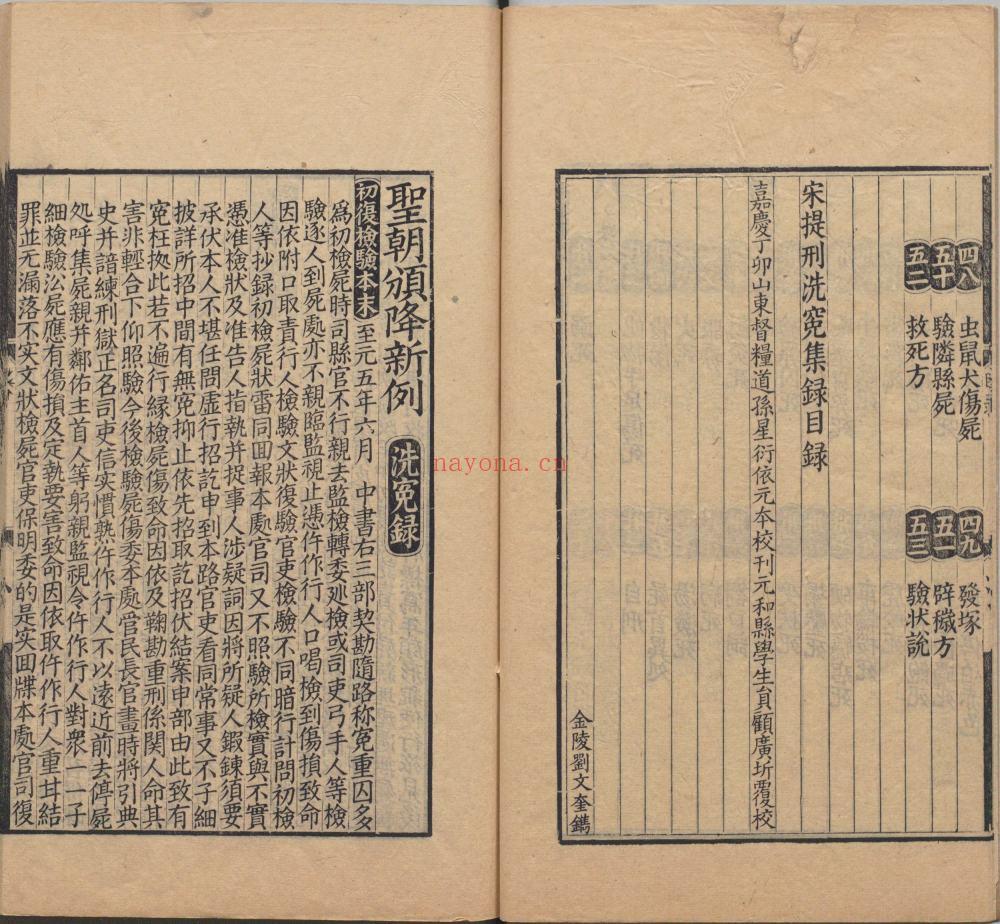 四八 虫鼠犬傷屍 四九 發塚
五十 驗隣縣屍 五一 辟穢方
五二 救死方 五三 驗狀說
宋提刑洗寃集録目録
嘉慶丁卯山東督糧道孫星衍依元夲校刊元和縣學生員顧廣圻覆校
金陵劉文奎鐫
聖朝頒降新例 洗寃録
初復檢驗本末 至元五年六月 中書右三部契勘隨路称寃重囚多
爲初檢屍時司縣官不行親去監檢轉委廵檢或司吏弓手人等檢
驗逐人到屍處亦不親臨監視止憑仵作行人口喝檢到傷損致命
因依附口取責行人檢驗文狀復驗官吏檢驗不同暗行計問初檢
人等抄録初檢屍狀雷同囬報本處官司又不照驗所檢實與不實
憑准檢狀及准告人指執并捉事人涉疑詞因將所疑人鍜鍊須要
承伏本人不堪任問虛行招訖申到本路官吏看同常事又不子細
披詳所招中間有無寃抑止依先招取訖招伏結案申部由此致有
寃枉揔此若不遍行緣檢屍傷致命因依及鞠勘重刑係関人命其
害非輕合下仰照驗今後檢驗屍傷委本處管民長官畫時將引典
史并諳練刑獄正名司吏信实慣熟仵作行人不以遠近前去停屍
処呼集屍親并鄰佑主首人等躬親監視令仵作行人對衆一一子
細檢驗沿屍應有傷損及定執要害致命因依取仵作行人重甘結
罪並无漏落不实文狀檢屍官吏保明委的是实囬牒本處官司復
nayona.cn